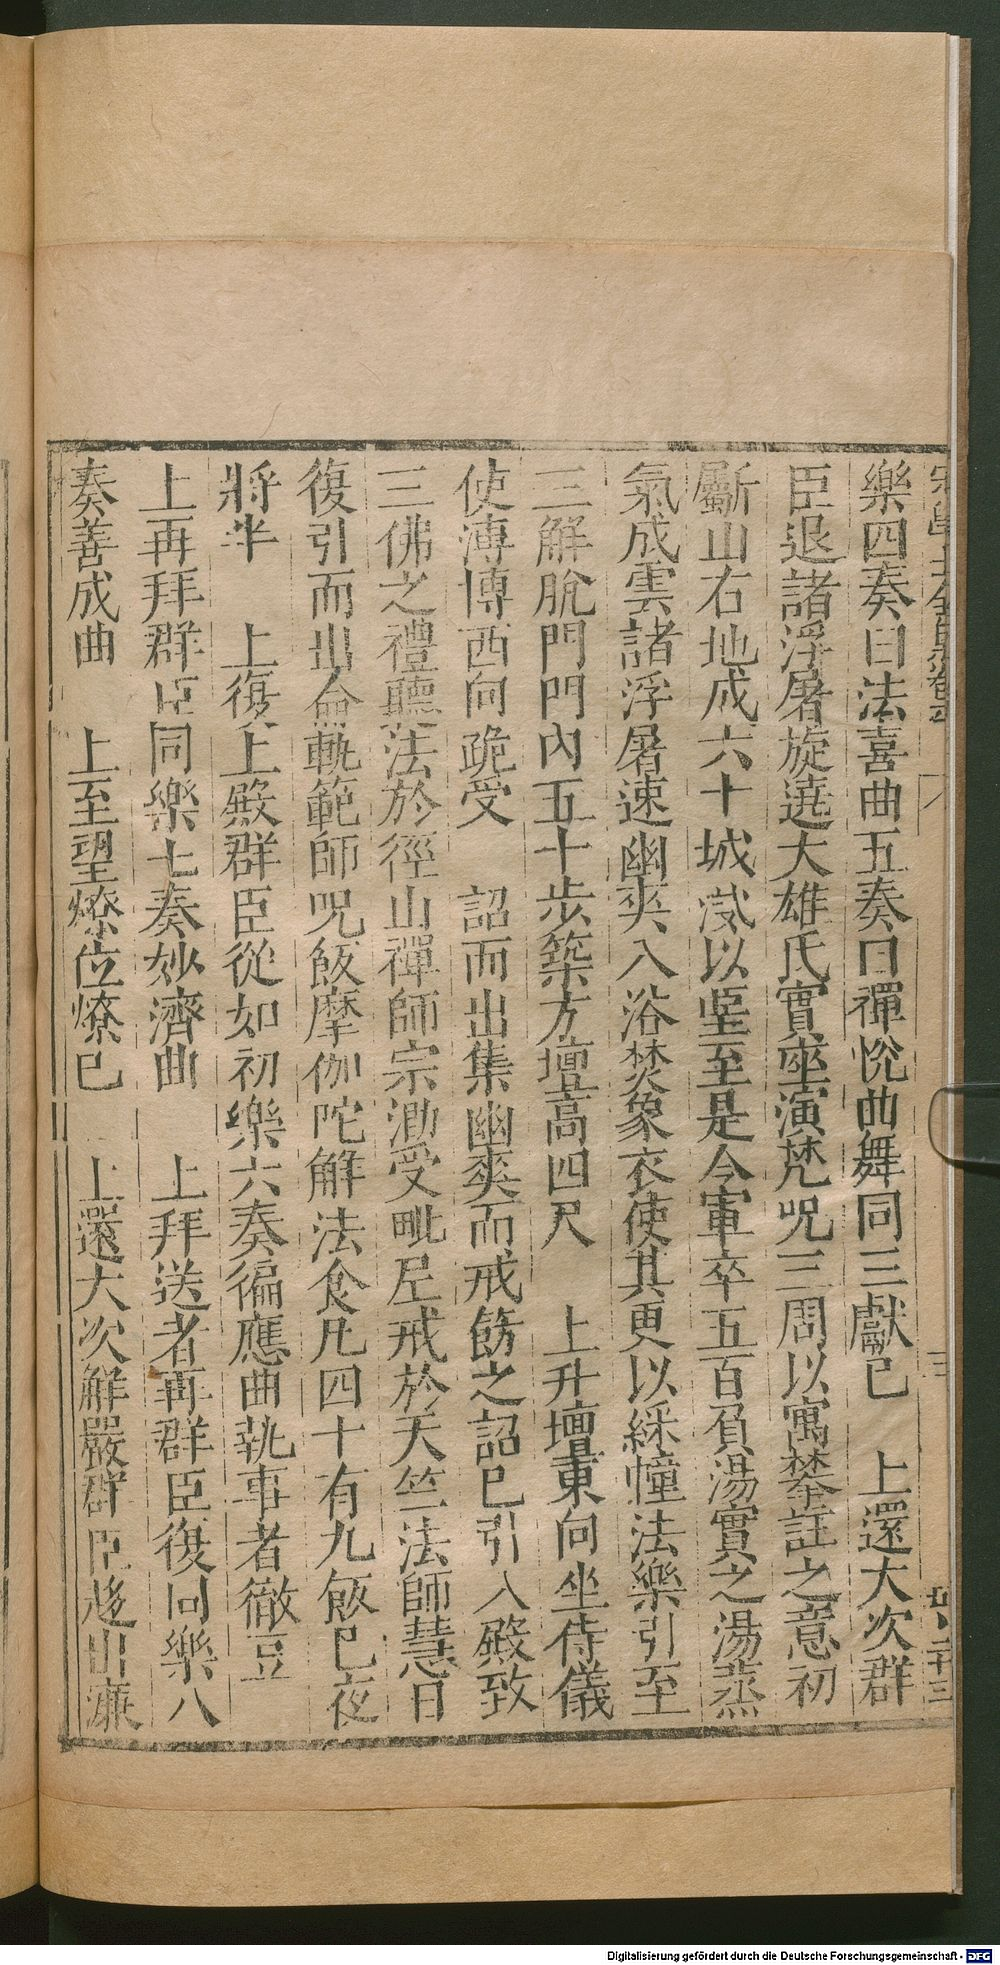 樂四奏曰法喜曲五奏曰禪悅曲舞同三獻已　上還大次群
臣退諸浮屠旋遶大雄氏寶座演梵咒三周以寓攀註之意初
斸山右地成六十城以堊至是令軍卒五百負湯實之湯蒸
氣成雲諸浮屠速幽爽入浴焚象衣使其更以綵幢法樂引至
三解脫門門內五十步築方壇高四尺　上升壇東向坐侍儀
使溥博西向跪受　詔而出集幽爽而戒飭之詔已引入殿致
三佛之禮聽法於徑山禪師宗泐受毗尼戒於天竺法師慧日
復引而出命軌範師咒飯摩伽陀斛法食凡四十有九飯已夜
將半　上復上殿群臣從如初樂六奏徧應曲執事者徹豆
上再拜群臣同樂七奏妙濟曲　上拜送者再群臣復同樂八
奏善成曲　上至望燎位燎已　上還大次解嚴群臣趍出濂
Digitalisierung gefördert durch die Deutsche Forschungsgemeinschaft - DFG